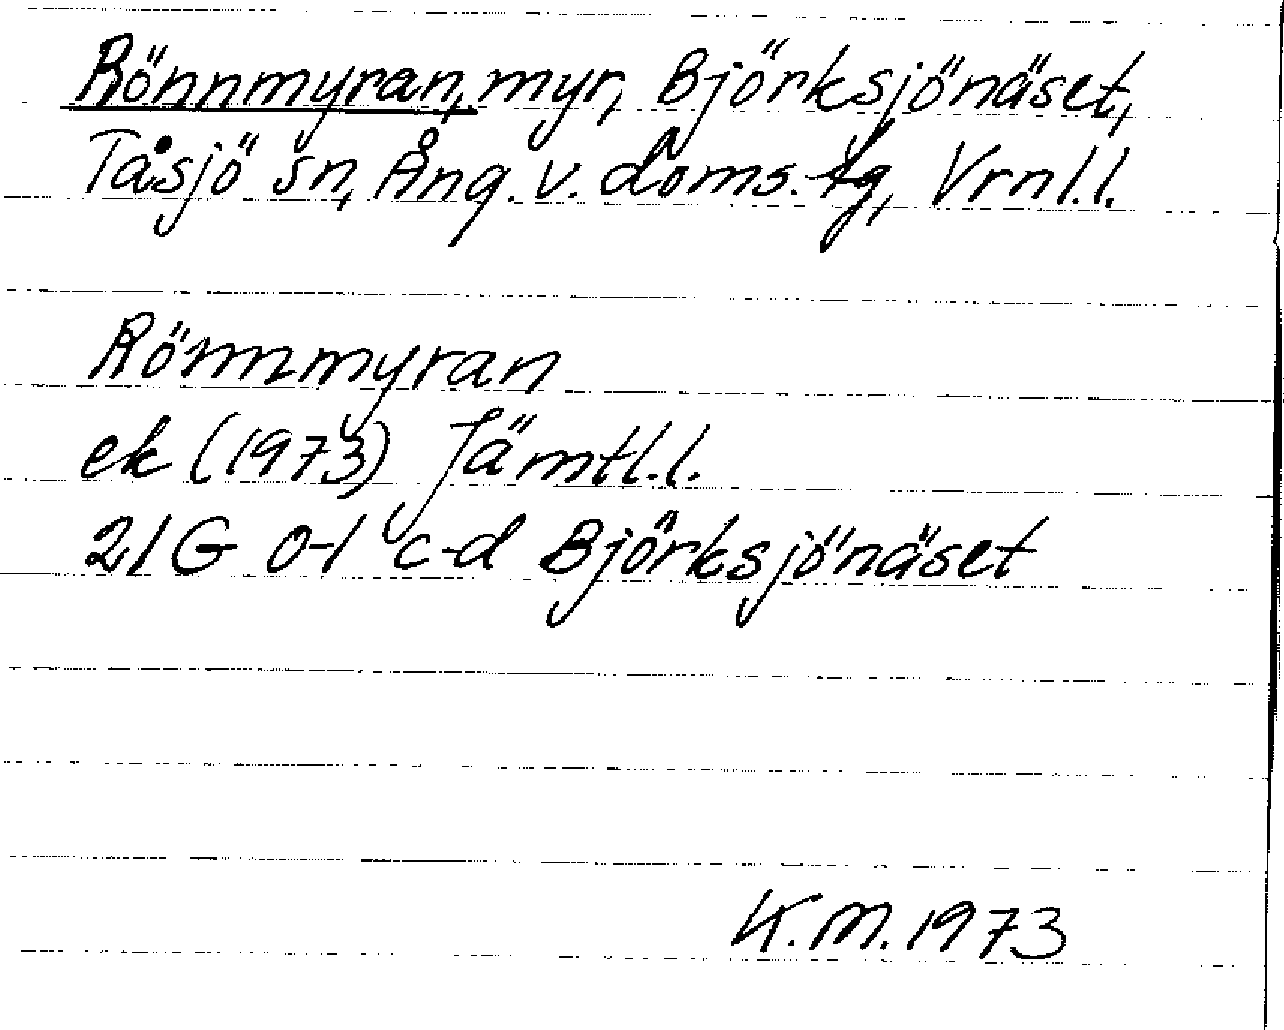 Rönnmyran, myr, Björksjönäset,
Tåsjö sn, Ång. v. doms.-tg, Vrnl.l.
Rönnmyran
ek (1973) Jämtl.l.
21G 0-1 c-d Björksjönäset
K.M. 1973